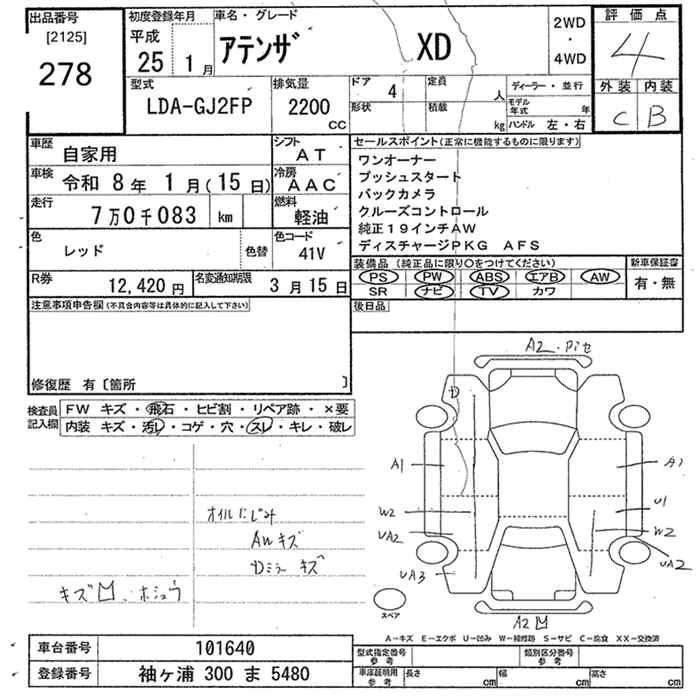 出品番号
[2125]
278
初度登録年月
平成
25 1月
車名・グレード
アテンザ XD
2WD
・
4WD
評価点
4
外装 内装
C B
型式
LDA-GJ2FP
排気量
2200
CC
ドア
4
形状
定員
人
積載
kg
ディーラー・並行
モデル年式 年
ハンドル 左・右
車歴 自家用
シフト AT
車検 令和 8年 1月(15日)
冷房 AAC
走行 7万0千083 km
燃料 軽油
色 レッド 色替
色コード 41V
R券 12,420円
名変通知期限 3月15日
セールスポイント(正常に機能するものに限ります)
ワンオーナー
プッシュスタート
バックカメラ
クルーズコントロール
純正19インチAW
ディスチャージPKG AFS
装備品(純正品に限り○をつけてください)
PS PW ABS エアB AW
SR ナビ TV カワ
新車保証書
有・無
後日品
注意事項申告欄(不具合内容等は具体的に記入して下さい)
修復歴 有〔箇所 〕
検査員記入欄
FW キズ・飛石・ヒビ割・リペア跡・×要
内装 キズ・汚レ・コゲ・穴・スレ・キレ・破レ
オイルにじみ
AWキズ
Dミラー キズ
キズ凹、ホシュウ
A2・Pセ
D
A1
A1
W2
U1
UA2
W2
UA2
UA3
A2凹
スペア
A-キズ E-エクボ U-凹み W-補修跡 S-サビ C-腐食 XX-交換済
車台番号 101640
登録番号 袖ヶ浦 300 ま 5480
型式指定番号 参考
類別区分番号 参考
車庫証明用 参考 長さ cm 幅 cm 高さ cm